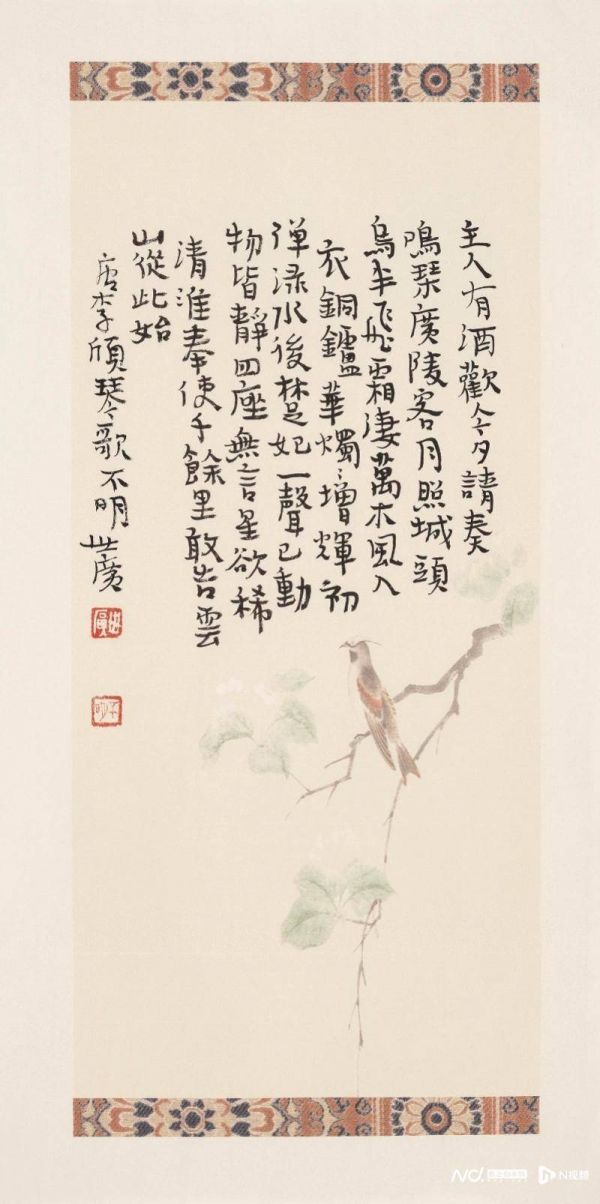 主人有酒歡今夕請奏
鳴琴廣陵客月照城頭
烏半飛霜淒萬木風入
衣銅鑪華燭〻增輝初
弹渌水後楚妃一聲已動
物皆靜四座無言星欲稀
清淮奉使千餘里敢告雲
山從此始
唐李頎琴歌不明世廣
N视频